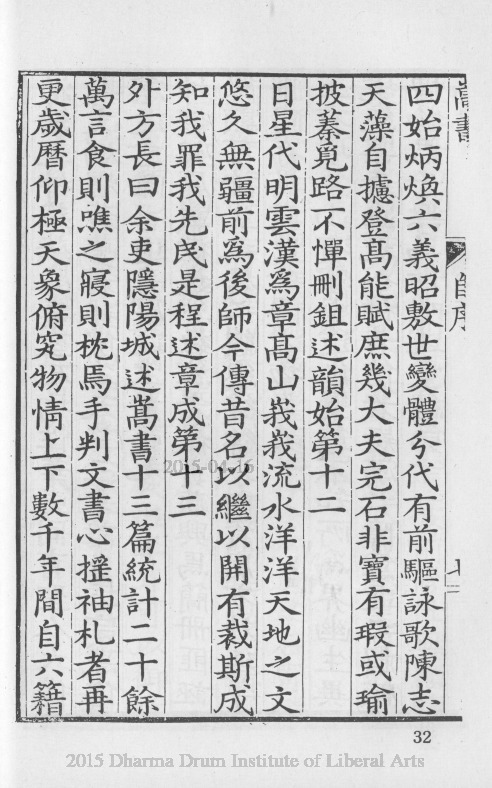 四始炳煥六義昭敷世變體分代有前驅詠歌陳志
天藻自攄登高能賦庶幾大夫完石非寶有瑕或瑜
披蓁覓路不憚刪鉏述韻始第十二
日星代明雲漢爲章高山峩峩流水洋洋天地之文
悠久無疆前爲後師今傳昔名以繼以開有裁斯成
知我罪我先民是程述章成第十三
外方長曰余吏隱陽城述嵩書十三篇統計二十餘
萬言食則噍之寢則枕焉手判文書心揺袖札者再
更歲曆仰極天象俯究物情上下數千年間自六籍
32
2015-04-16
2015 Dharma Drum Institute of Liberal Arts